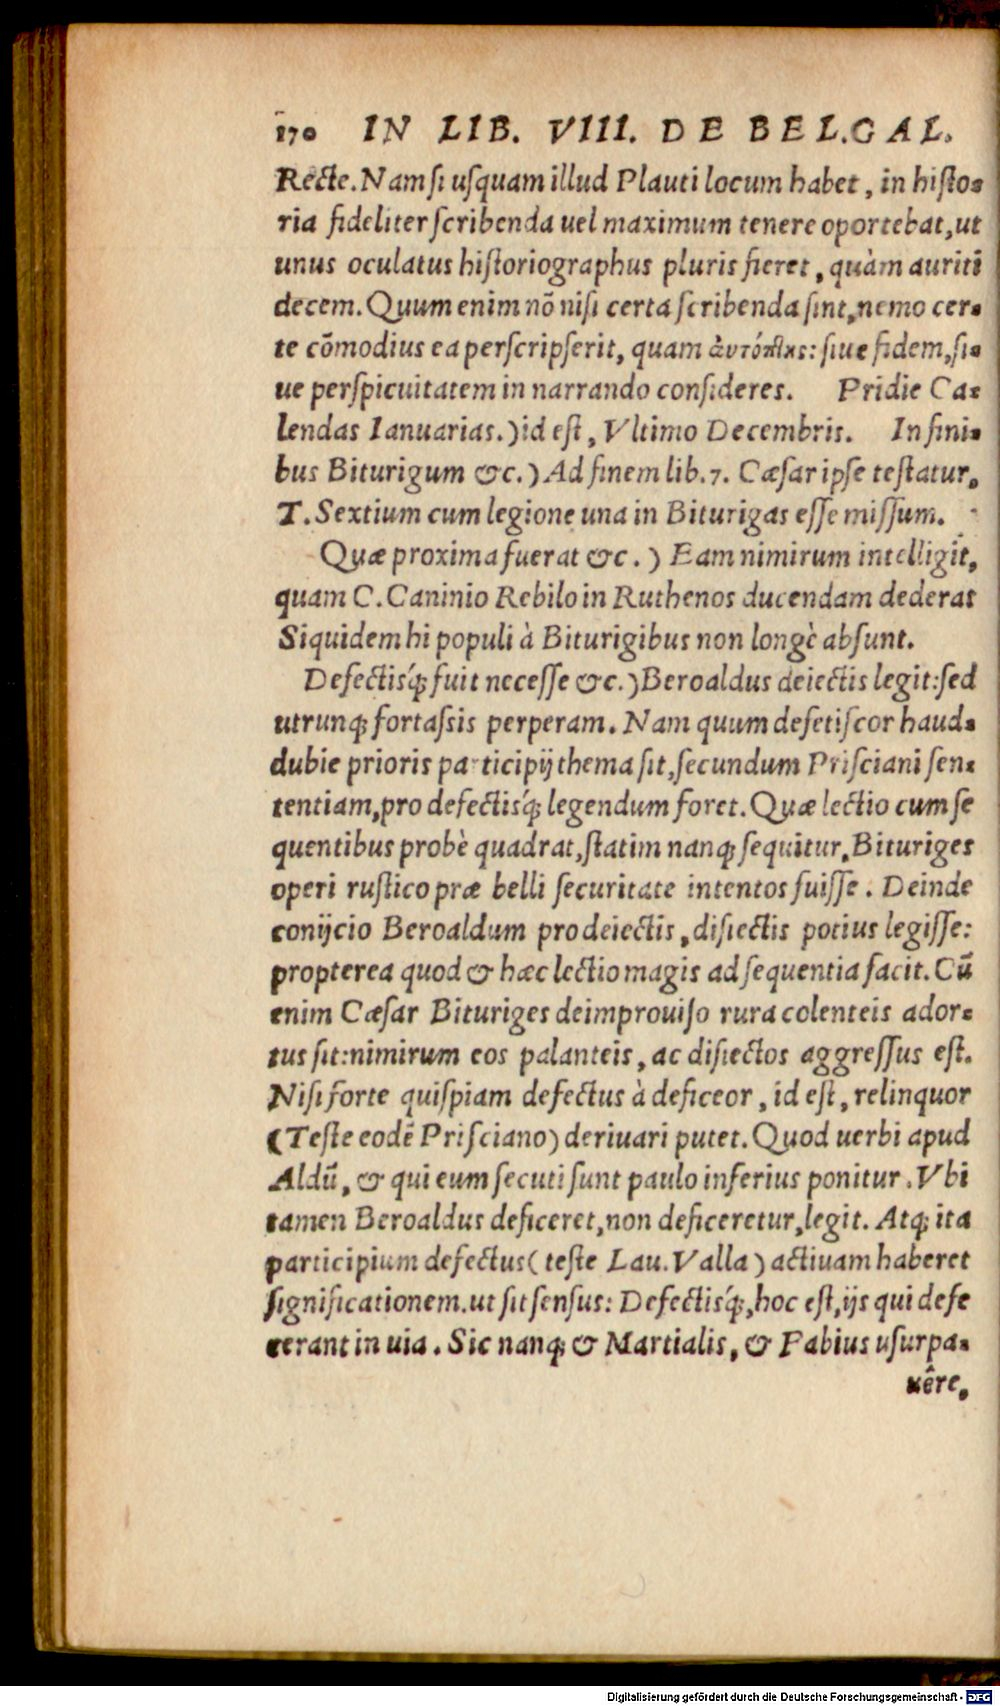 170 IN LIB. VIII. DE BEL.GAL.
Recte. Nam si usquam illud Plauti locum habet, in histo-
ria fideliter scribenda uel maximum tenere oportebat, ut
unus oculatus historiographus pluris fieret, quàm auriti
decem. Quum enim nō nisi certa scribenda sint, nemo cer-
te cōmodius ea perscripserit, quam ἀυτόπτης: siue fidem, si-
ue perspicuitatem in narrando consideres. Pridie Ca-
lendas Ianuarias.) id est, Vltimo Decembris. In fini-
bus Biturigum &c.) Ad finem lib.7. Cæsar ipse testatur,
T. Sextium cum legione una in Biturigas esse missum.
Quæ proxima fuerat &c.) Eam nimirum intelligit,
quam C. Caninio Rebilo in Ruthenos ducendam dederat
Siquidem hi populi à Biturigibus non longè absunt.
Defectisq́; fuit necesse &c.) Beroaldus deiectis legit: sed
utrunq; fortassis perperam. Nam quum defetiscor haud-
dubie prioris participij thema sit, secundum Prisciani sen-
tentiam, pro defectisq́; legendum foret. Quæ lectio cum se
quentibus probè quadrat, statim nanq; sequitur, Bituriges
operi rustico præ belli securitate intentos fuisse. Deinde
conijcio Beroaldum pro deiectis, disiectis potius legisse:
propterea quod & hæc lectio magis ad sequentia facit. Cū
enim Cæsar Bituriges deimprouiso rura colenteis ador-
tus sit: nimirum eos palanteis, ac disiectos aggressus est.
Nisi forte quispiam defectus à deficeor, id est, relinquor
(Teste eodē Prisciano) deriuari putet. Quod uerbi apud
Aldū, & qui eum secuti sunt paulo inferius ponitur. Vbi
tamen Beroaldus deficeret, non deficeretur, legit. Atq; ita
participium defectus (teste Lau. Valla) actiuam haberet
significationem. ut sit sensus: Defectisq́;, hoc est, ijs qui defe
cerant in uia. Sic nanq; & Martialis, & Fabius usurpa-
uêre,
Digitalisierung gefördert durch die Deutsche Forschungsgemeinschaft - DFG